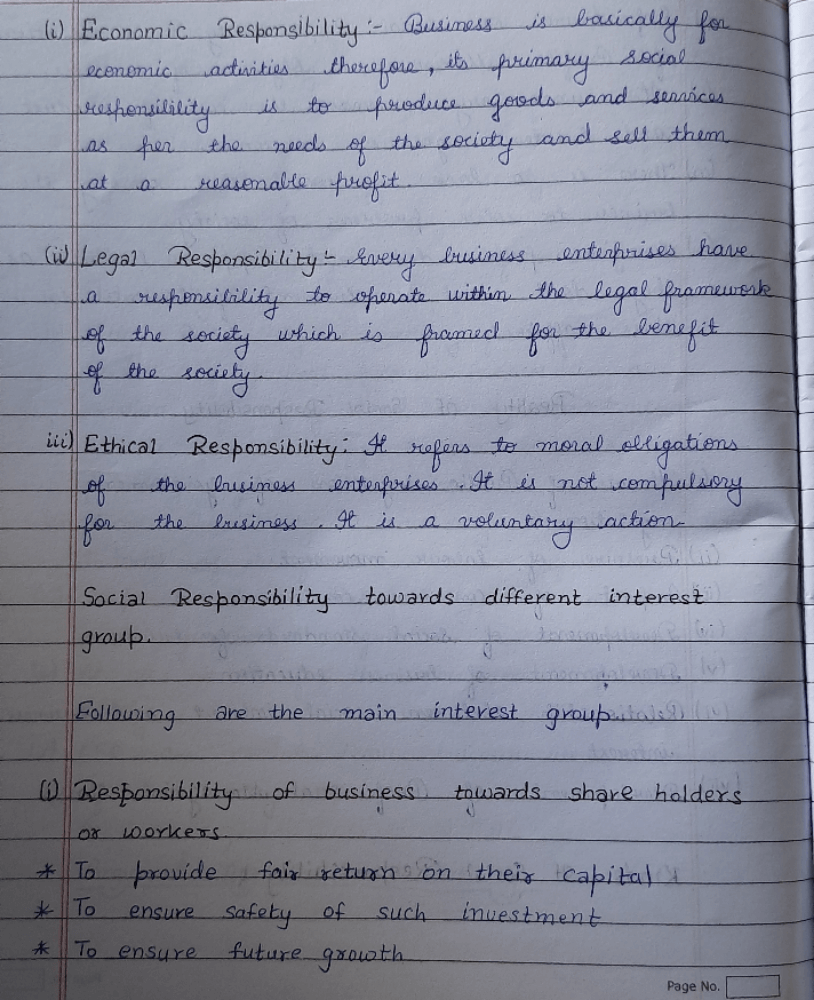 (i) Economic Responsibility :- Business is basically for
economic activities therefore, its primary social
responsibility is to produce goods and services
as per the needs of the society and sell them
at a reasonable profit.
(ii) Legal Responsibility :- Every business enterprises have
a responsibility to operate within the legal framework
of the society which is framed for the benefit
of the society.
iii) Ethical Responsibility : It refers to moral obligations
of the business enterprises. It is not compulsory
for the business. It is a voluntary action.
Social Responsibility towards different interest
group.
Following are the main interest group.
(i) Responsibility of business towards share holders
or workers.
* To provide fair return on their capital
* To ensure safety of such investment
* To ensure future growth
Page No.